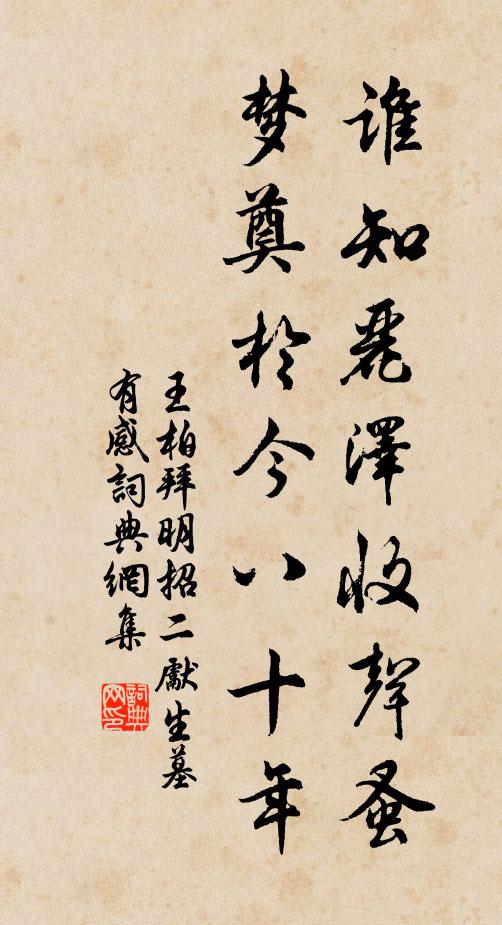 谁知麗澤收聲蚤
梦奠於今八十年
王柏拜明招二獻生墓
有感詞典網集
詞典网印